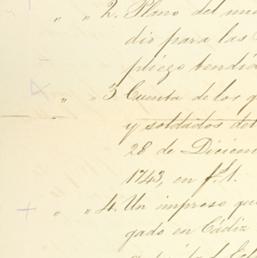 " " 2. Plano del
dir para las
pliego tendrá
" " 3. Cuenta de los g
y soldados del
28 de Diciem
1743, en f.º 1.
" " 4. Un impreso que
gado en Cádiz